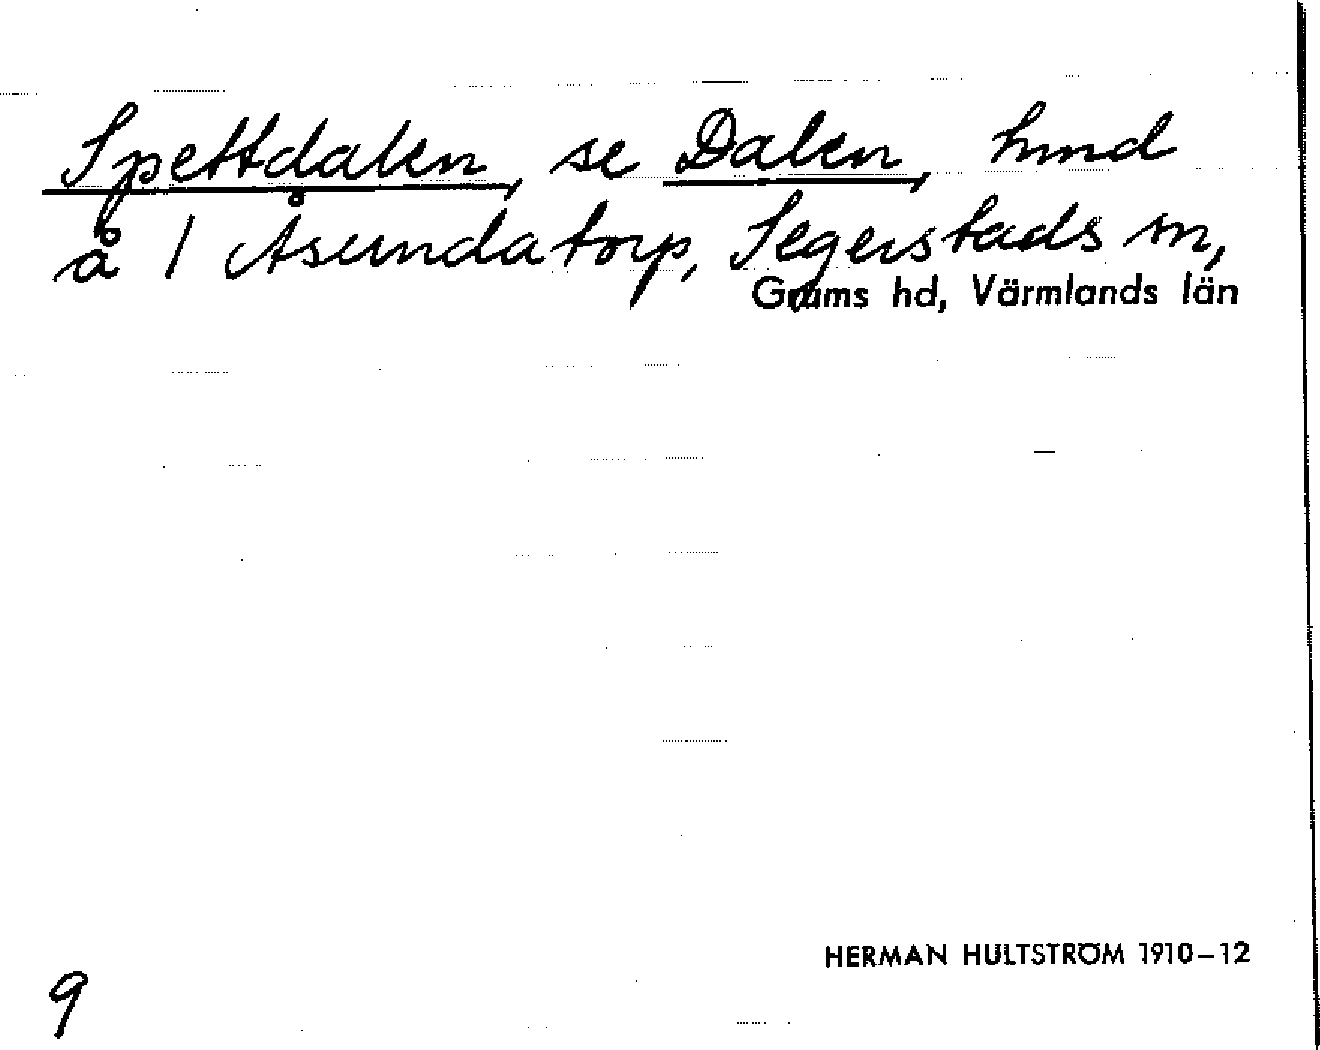 Spettdalen, se Dalen, hmd
å 1 Åsundatorp, Segerstads sn,
Grums hd, Värmlands län
HERMAN HULTSTRÖM 1910-12
9